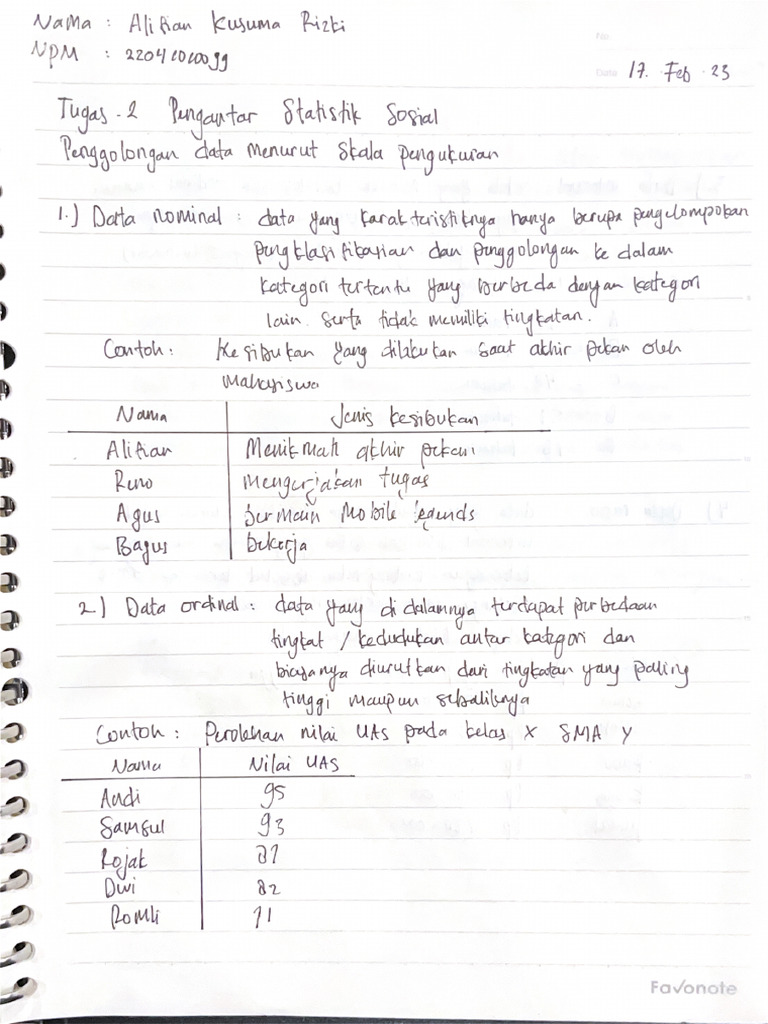 Nama : Alifian Kusuma Rizki
NPM : 22041010099
No.
Date 17. Feb . 23
Tugas . 2 Pengantar Statistik Sosial
Penggolongan data menurut skala pengukuran
1.) Data nominal : data yang karakteristiknya hanya berupa pengelompokan
pengklasifikasian dan penggolongan ke dalam
kategori tertentu yang berbeda dengan kategori
lain. serta tidak memiliki tingkatan.
Contoh : Kesibukan yang dilakukan saat akhir pekan oleh
Mahasiswa
Nama Jenis kesibukan
Alifian Menikmati akhir pekan
Reno mengerjakan tugas
Agus bermain Mobile legends
Bagus bekerja
2.) Data ordinal : data yang di dalamnya terdapat perbedaan
tingkat / kedudukan antar kategori dan
biasanya diurutkan dari tingkatan yang paling
tinggi maupun sebaliknya
Contoh : Perolehan nilai UAS pada kelas X SMA Y
Nama Nilai UAS
Andi 95
Samsul 93
Rojak 87
Dwi 82
Romli 71
Favonote